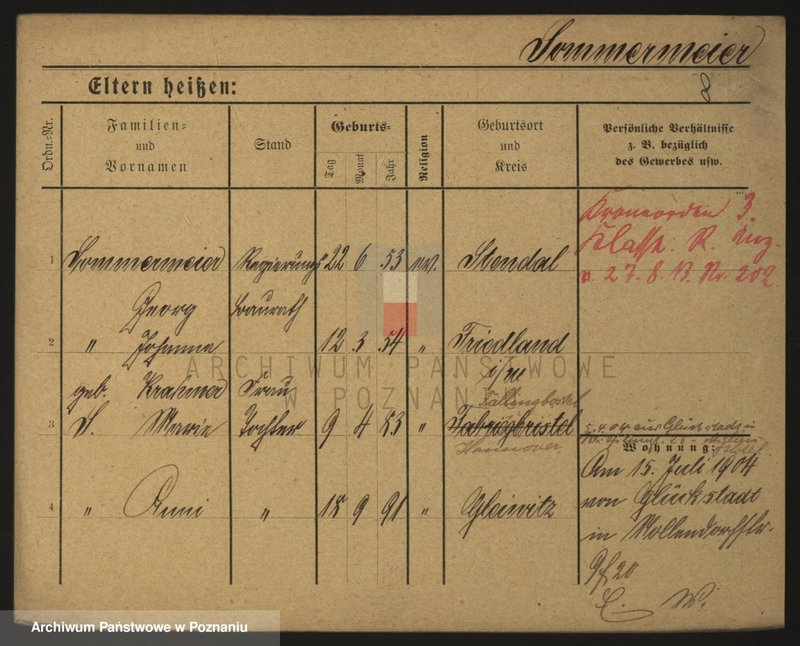 Sommermeier
8
Eltern heißen:
Ordn.-Nr.
Familien- und Vornamen
Stand
Geburts-
Tag
Monat
Jahr
Religion
Geburtsort und Kreis
Persönliche Verhältnisse
z. B. bezüglich
des Gewerbes usw.
Kronenorden 3.
Klasse. R. Anz.
v. 27. 8. 13. Nr. 202
1 Sommermeier Regierungs 22 6 53 ev. Stendal
Georg Baurath
2 " Johanna 12 3 54 " Friedland
geb. Krahmer Frau i/M
Fallingbostel
3 S. Marie Tochter 9 4 83 " Fabrigbristel
Hannover
5.4.04 aus Glückstadt
Wohnung:
Am 15. Juli 1904
von Glückstadt
in Mollendorffstr.
4 " Anni " 18 9 91 " Gleiwitz
20
E. W.
ARCHIWUM PAŃSTWOWE
W POZNANIU
Archiwum Państwowe w Poznaniu